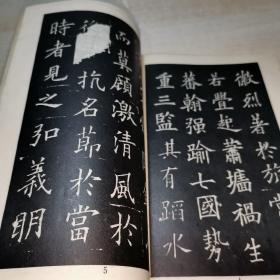 徽烈著於
若釁起蕭墻禍生
蕃翰强踰七國勢
重三監其有蹈水
而莫顧激清風於
抗名節於當
時者見之弘義明
5